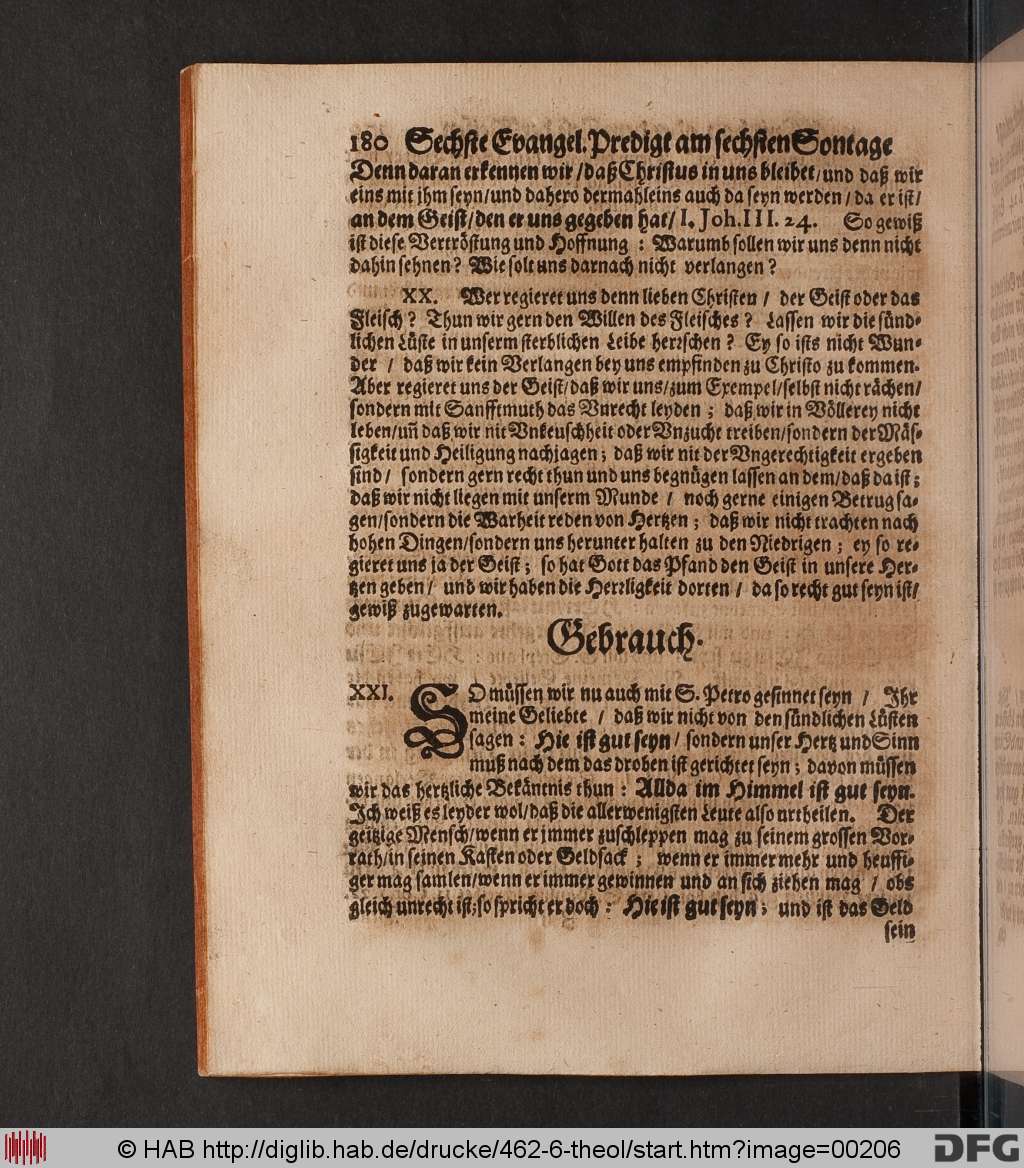 180 Sechste Evangel. Predigt am sechsten Sontage
Denn daran erkennen wir / daß Christus in uns bleibet / und daß wir
eins mit jhm seyn / und dahero dermahleins auch da seyn werden / da er ist /
an dem Geist / den er uns gegeben hat / I. Joh. III. 24. So gewiß
ist diese Vertröstung und Hoffnung : Warumb sollen wir uns denn nicht
dahin sehnen? Wie solt uns darnach nicht verlangen?
XX. Wer regieret uns denn lieben Christen / der Geist oder das
Fleisch? Thun wir gern den Willen des Fleisches? Lassen wir die sünd-
lichen Lüste in unserm sterblichen Leibe herrschen? Ey so ists nicht Wun-
der / daß wir kein Verlangen bey uns empfinden zu Christo zu kommen.
Aber regieret uns der Geist / daß wir uns / zum Exempel / selbst nicht rächen /
sondern mit Sanfftmuth das Vnrecht leyden ; daß wir in Völlerey nicht
leben / uñ daß wir nit Vnkeuschheit oder Vnzucht treiben / sondern der Mäs-
sigkeit und Heiligung nachjagen ; daß wir nit der Vngerechtigkeit ergeben
sind / sondern gern recht thun und uns begnügen lassen an dem / daß da ist ;
daß wir nicht liegen mit unserm Munde / noch gerne einigen Betrug sa-
gen / sondern die Warheit reden von Hertzen ; daß wir nicht trachten nach
hohen Dingen / sondern uns herunter halten zu den Niedrigen ; ey so re-
gieret uns ja der Geist ; so hat Gott das Pfand den Geist in unsere Her-
tzen geben / und wir haben die Herrligkeit dorten / da so recht gut seyn ist /
gewiß zugewarten.
Gebrauch.
XXI. SO müssen wir nu auch mit S. Petro gesinnet seyn / Ihr
meine Geliebte / daß wir nicht von den sündlichen Lüsten
sagen : Hie ist gut seyn / sondern unser Hertz und Sinn
muß nach dem das droben ist gerichtet seyn ; davon müssen
wir das hertzliche Bekäntnis thun : Allda im Himmel ist gut seyn.
Ich weiß es leyder wol / daß die allerwenigsten Leute also urtheilen. Der
geitzige Mensch / wenn er immer zuschleppen mag zu seinem grossen Vor-
rath / in seinen Kasten oder Geldsack ; wenn er immer mehr und heuffi-
ger mag samlen / wenn er immer gewinnen und an sich ziehen mag / obs
gleich unrecht ist ; so spricht er doch : Hie ist gut seyn ; und ist das Geld
sein
© HAB http://diglib.hab.de/drucke/462-6-theol/start.htm?image=00206
DFG